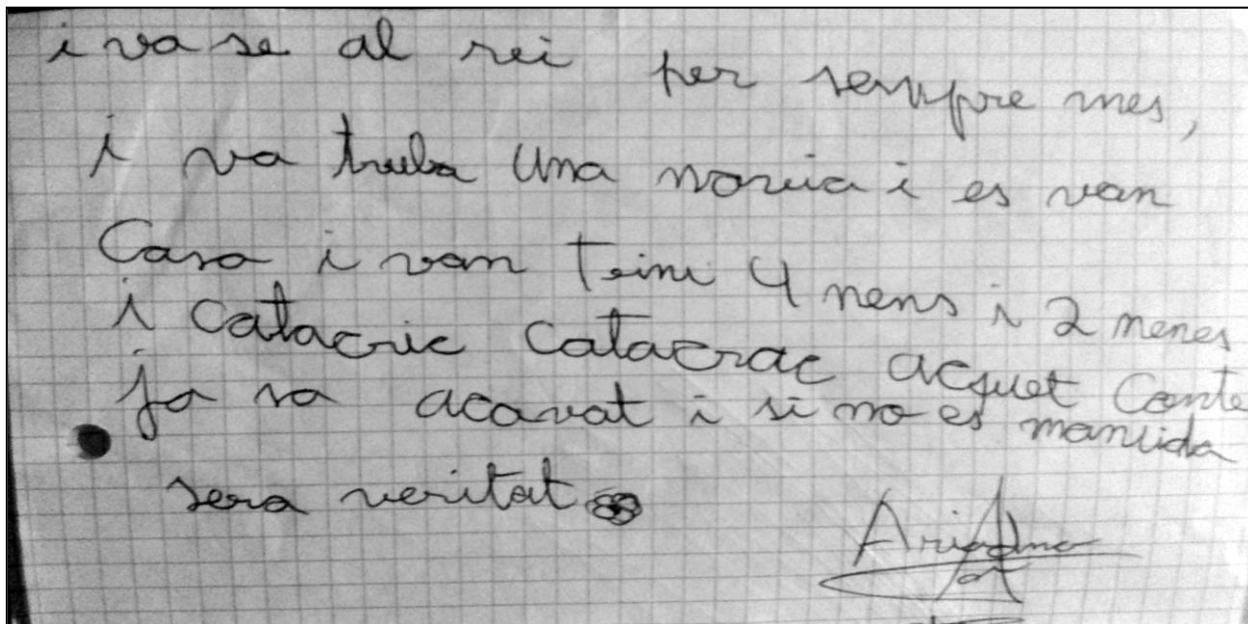 i va se al rei per sempre mes,
i va truba una novia i es van
Casa i van Teini 4 nens i 2 nenes
i Catacric Catacrac acquet Conte
ja sa acavat i si no es mantida
sera veritat
Ariadna